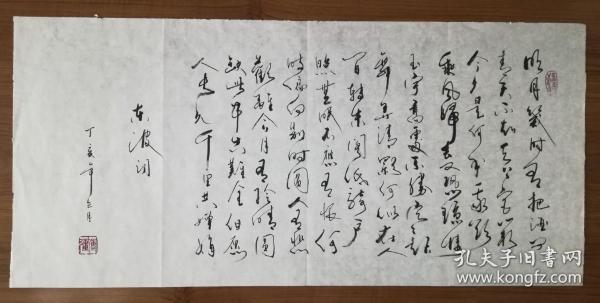 明月幾时有把酒问
青天不知天上宫阙
今夕是何年我欲
乘风归去又恐琼楼
玉宇高处不胜寒起
舞弄清影何似在人
间转朱阁低绮户
照無眠不应有恨何
时偏向别时圆人有悲
歡離合月有陰晴圆
缺此事古難全但愿
人长久千里共婵娟
东坡词
丁亥年 月
孔夫子旧书网
www.kongfz.com